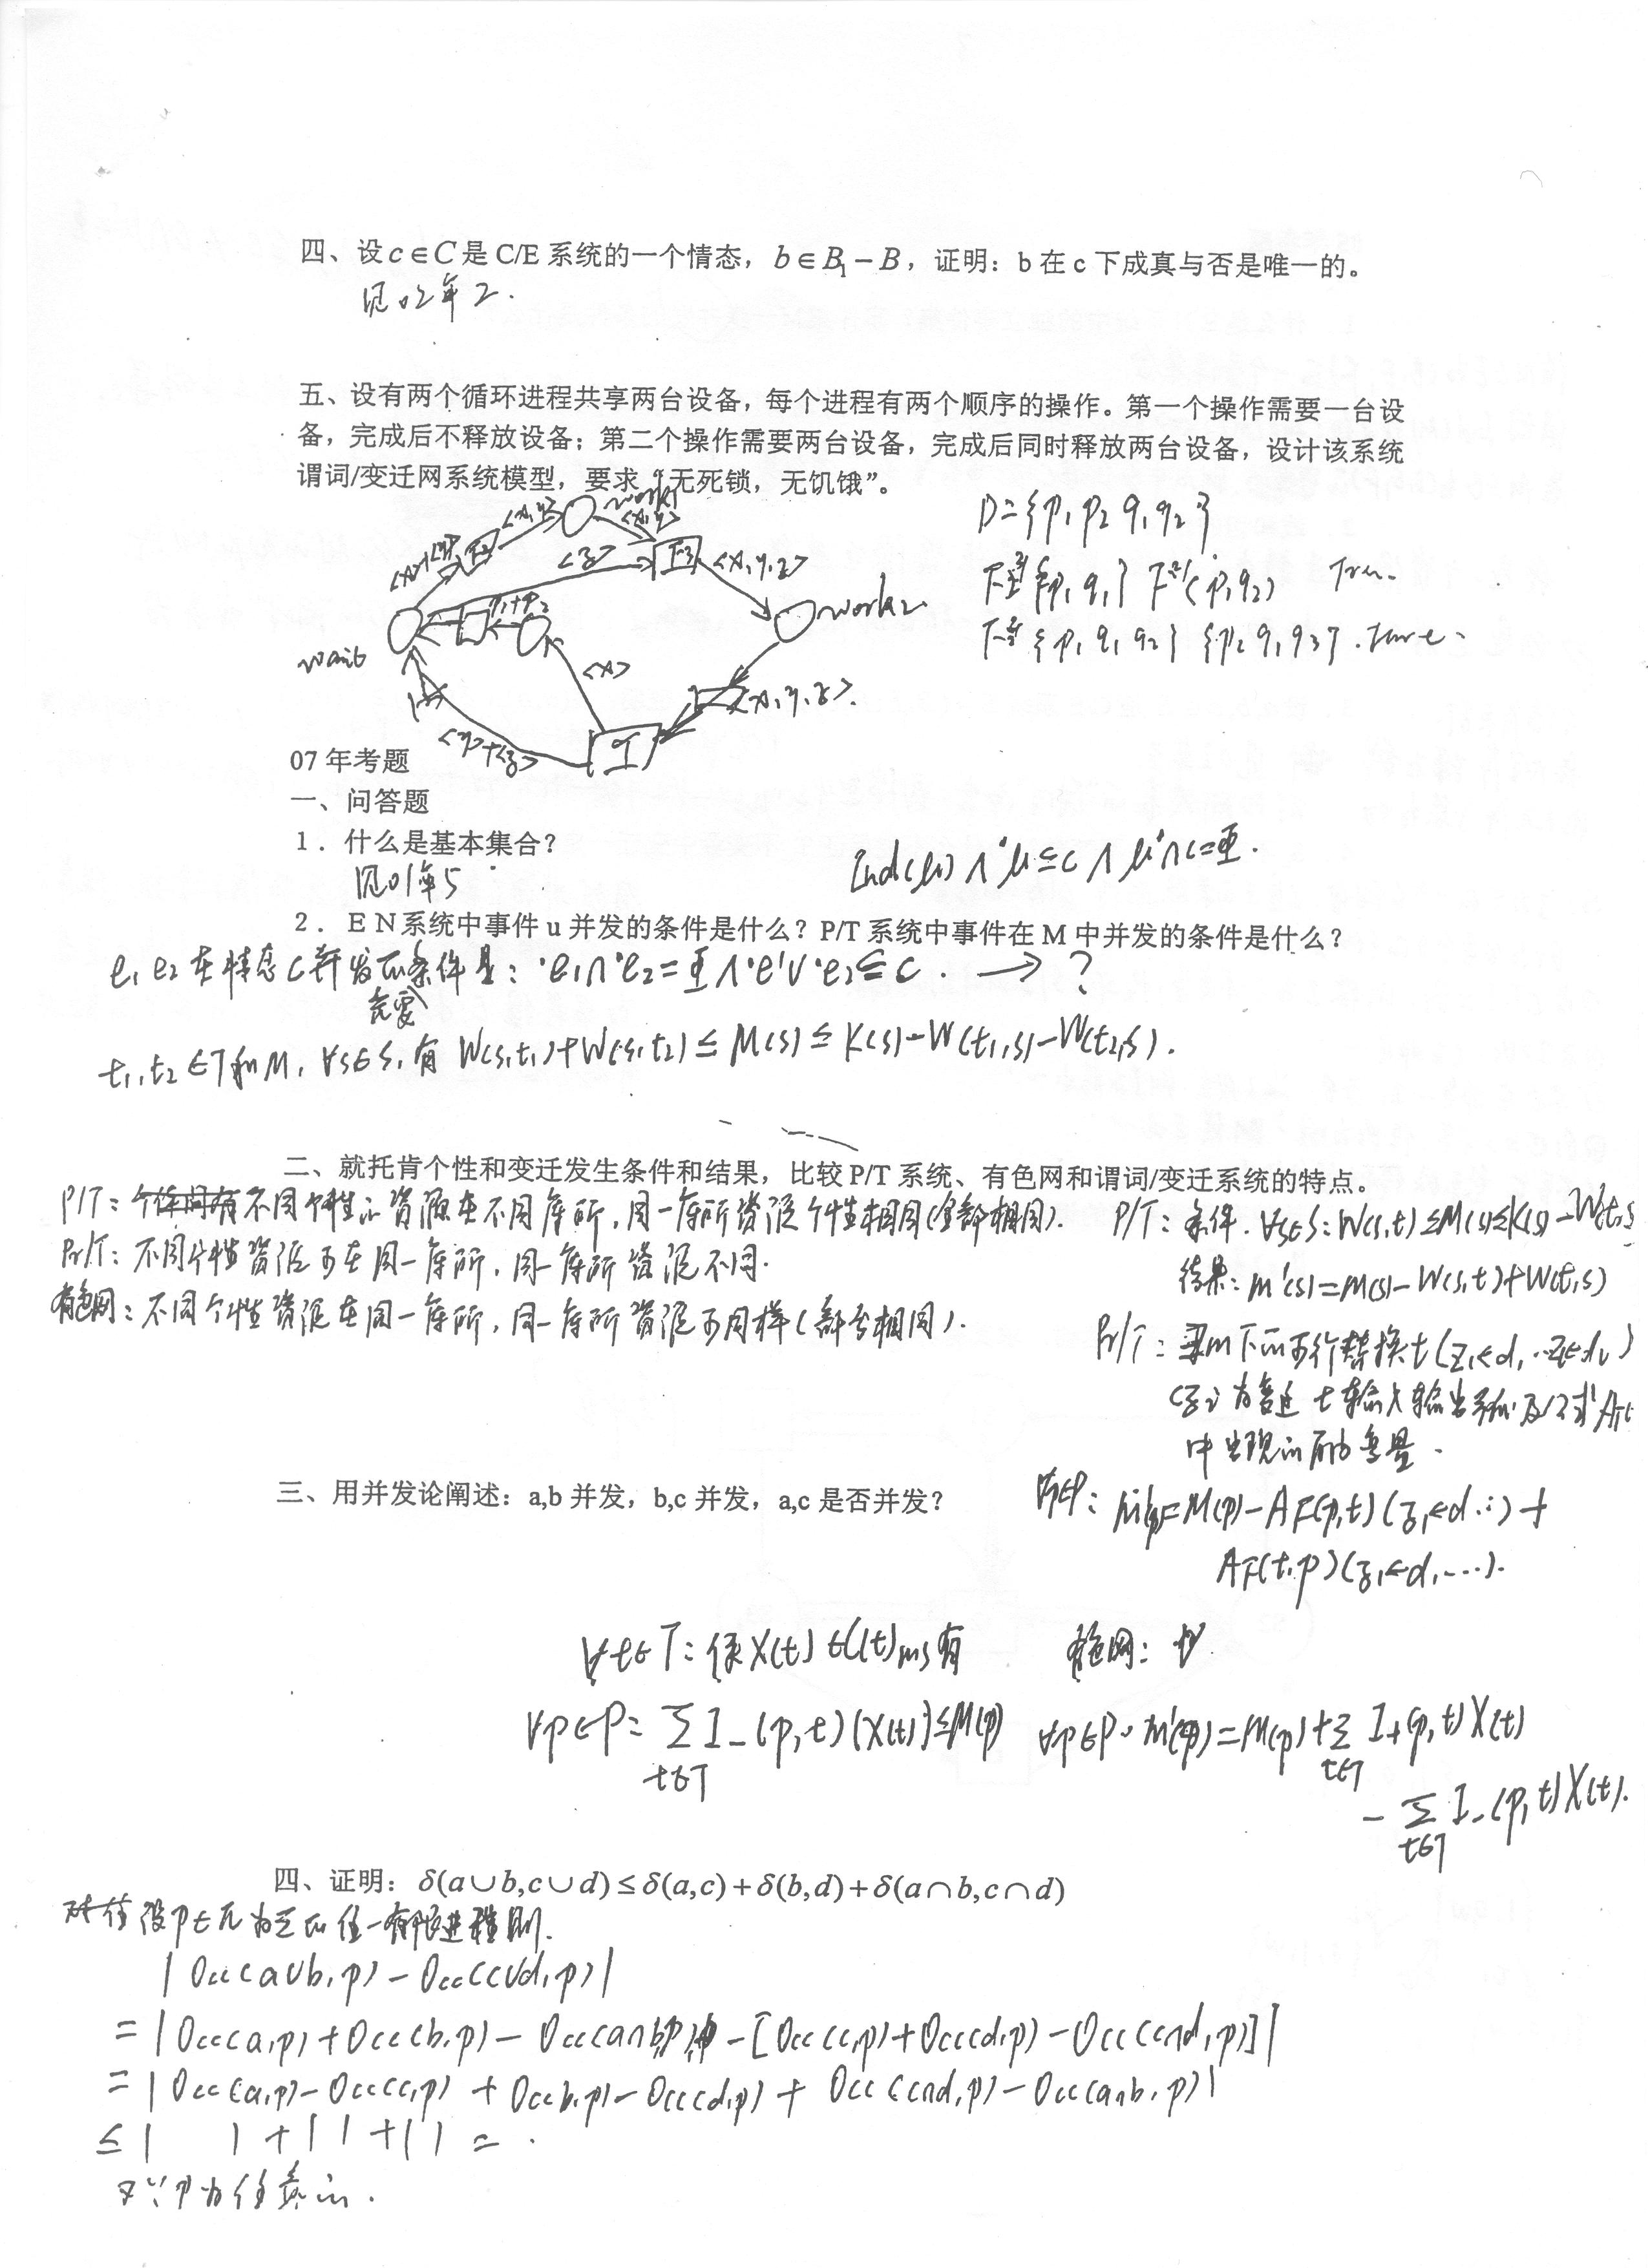 四、设 c∈C 是 C/E 系统的一个情态，b∈B₁−B，证明：b 在 c 下成真与否是唯一的。
见02年2.
五、设有两个循环进程共享两台设备，每个进程有两个顺序的操作。第一个操作需要一台设
备，完成后不释放设备；第二个操作需要两台设备，完成后同时释放两台设备，设计该系统
谓词/变迁网系统模型，要求“无死锁，无饥饿”。
<x,y>
work1
<x,y>
<z>
<x,y,z>
work2
wait
<x>
<x,y,z>
<y>+<z>
D={p₁ p₂ q₁ q₂}
07 年考题
一、问答题
1．什么是基本集合？
见01年5
Ind(u) ∧ ˙u⊆c ∧ u˙∩c=Φ.
2．E N系统中事件 u 并发的条件是什么？P/T 系统中事件在 M 中并发的条件是什么？
e₁ e₂ 在情态 C 并发的条件是：˙e₁∩˙e₂=Φ∧˙e₁∪˙e₂⊆C. → ?
充要
t₁,t₂∈T和M, ∀s∈S, 有 W(s,t₁)+W(s,t₂)≤M(s)≤K(s)−W(t₁,s)−W(t₂,s).
二、就托肯个性和变迁发生条件和结果，比较 P/T 系统、有色网和谓词/变迁系统的特点。
P/T：不同个性的资源在不同库所，同一库所资源个性相同(全部相同).
Pr/T：不同个性资源可在同一库所，同一库所资源不同.
有色网：不同个性资源在同一库所，同一库所资源不同样(部分相同).
P/T：条件. ∀s∈S: W(s,t)≤M(s)≤K(s)−W(t,s
结果：M'(s)=M(s)−W(s,t)+W(t,s)
Pr/T：M下的可行替换t(z₁←d₁
中出现的 变量.
三、用并发论阐述：a,b 并发，b,c 并发，a,c 是否并发？
∀p∈P：M'(p)=M(p)−A_F(p,t)(z₁←d…)+
A_F(t,p)(z₁←d₁…).
∀t∈T：使X(t)∈C(t)ms有
有色网：
∀p∈P：∑ I₋(p,t)(X(t))≤M(p)
t∈T
∀p∈P, M'(p)=M(p)+∑ I₊(p,t)X(t)
t∈T
−∑ I₋(p,t)X(t).
t∈T
四、证明：δ(a∪b,c∪d)≤δ(a,c)+δ(b,d)+δ(a∩b,c∩d)
设p∈π为Σ的任一有限进程则.
|Occ(a∪b,p)−Occ(c∪d,p)|
=|Occ(a,p)+Occ(b,p)−Occ(a∩b,p)−[Occ(c,p)+Occ(d,p)−Occ(c∩d,p)]|
=|Occ(a,p)−Occ(c,p)+Occ(b,p)−Occ(d,p)+Occ(c∩d,p)−Occ(a∩b,p)|
≤| |+| |+| | = .
又∵p为任意的.